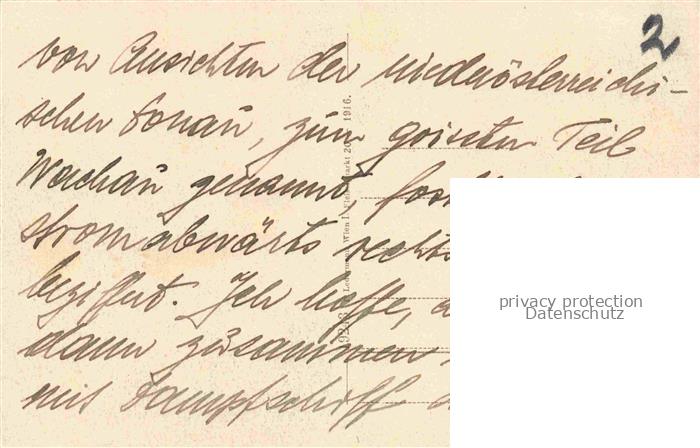 2
von Ansichten der niederösterreichi-
schen Donau, zum größten Teil
Wachau genannt,
stromabwärts rechts
beziffert. Ich hoffe,
dann zusammen
mit Dampfschiff
Ledermann, Wien I., Fleischmarkt 20. 1916.
privacy protection
Datenschutz